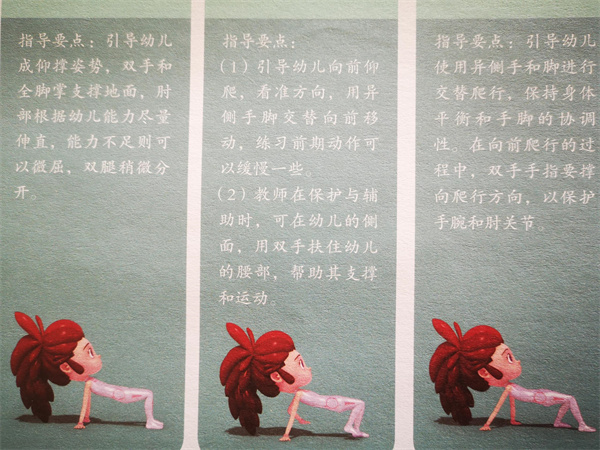 指导要点：引导幼儿
成仰撑姿势，双手和
全脚掌支撑地面，肘
部根据幼儿能力尽量
伸直，能力不足则可
以微屈，双腿稍微分
开。
指导要点：
（1）引导幼儿向前仰
爬，看准方向，用异
侧手脚交替向前移
动，练习前期动作可
以缓慢一些。
（2）教师在保护与辅
助时，可在幼儿的侧
面，用双手扶住幼儿
的腰部，帮助其支撑
和运动。
指导要点：引导幼儿
使用异侧手和脚进行
交替爬行，保持身体
平衡和手脚的协调
性。在向前爬行的过
程中，双手手指要撑
向爬行方向，以保护
手腕和肘关节。